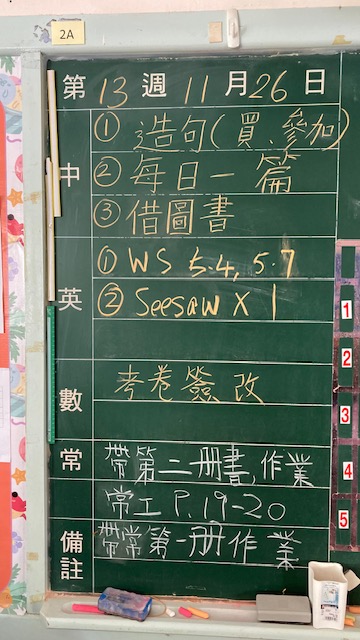 2A
第13週11月26日
中 ①造句(買、參加)
②每日一篇
③借圖書
英 ①WS 5.4, 5.7
②Seesaw X 1
數 考卷簽改
常 帶第二册書,作業
常工 P.19-20
備註 帶常第一册作業
1
2
3
4
5